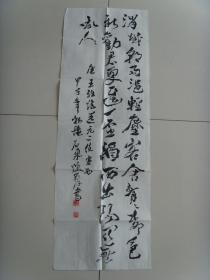 渭城朝雨浥輕塵客舍青青柳色
新勸君更進一杯酒西出陽關無
故人
唐王維詩送元二使安西
甲午年秋